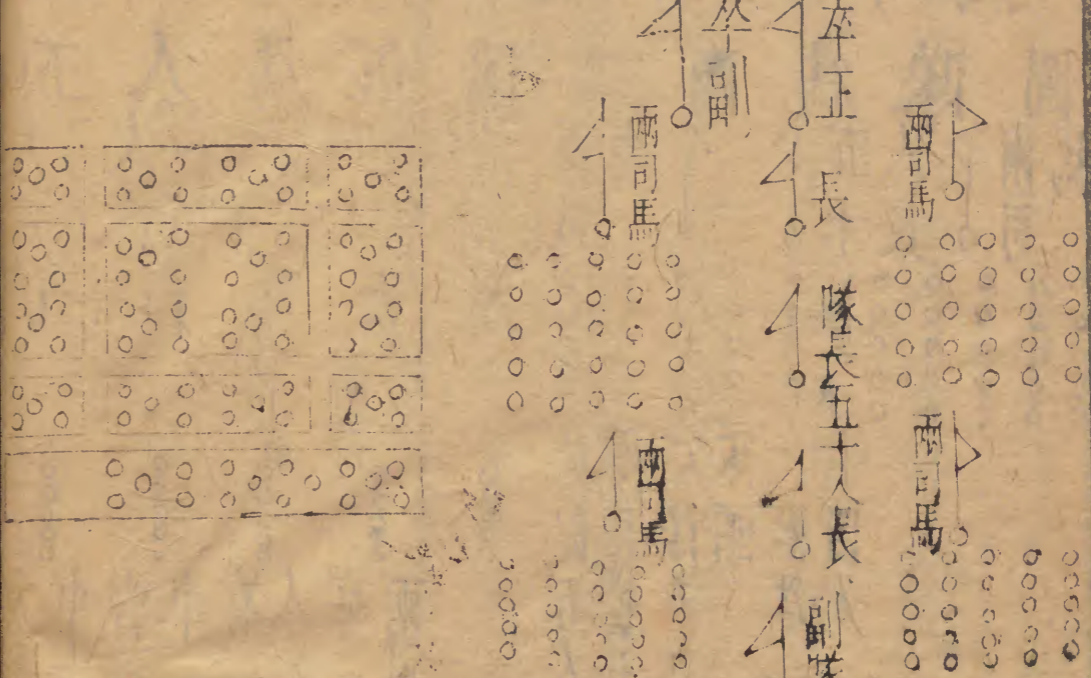 兩司馬
兩司馬
卒正
長
隊長五十人長
副隊
卒副
兩司馬
兩司馬